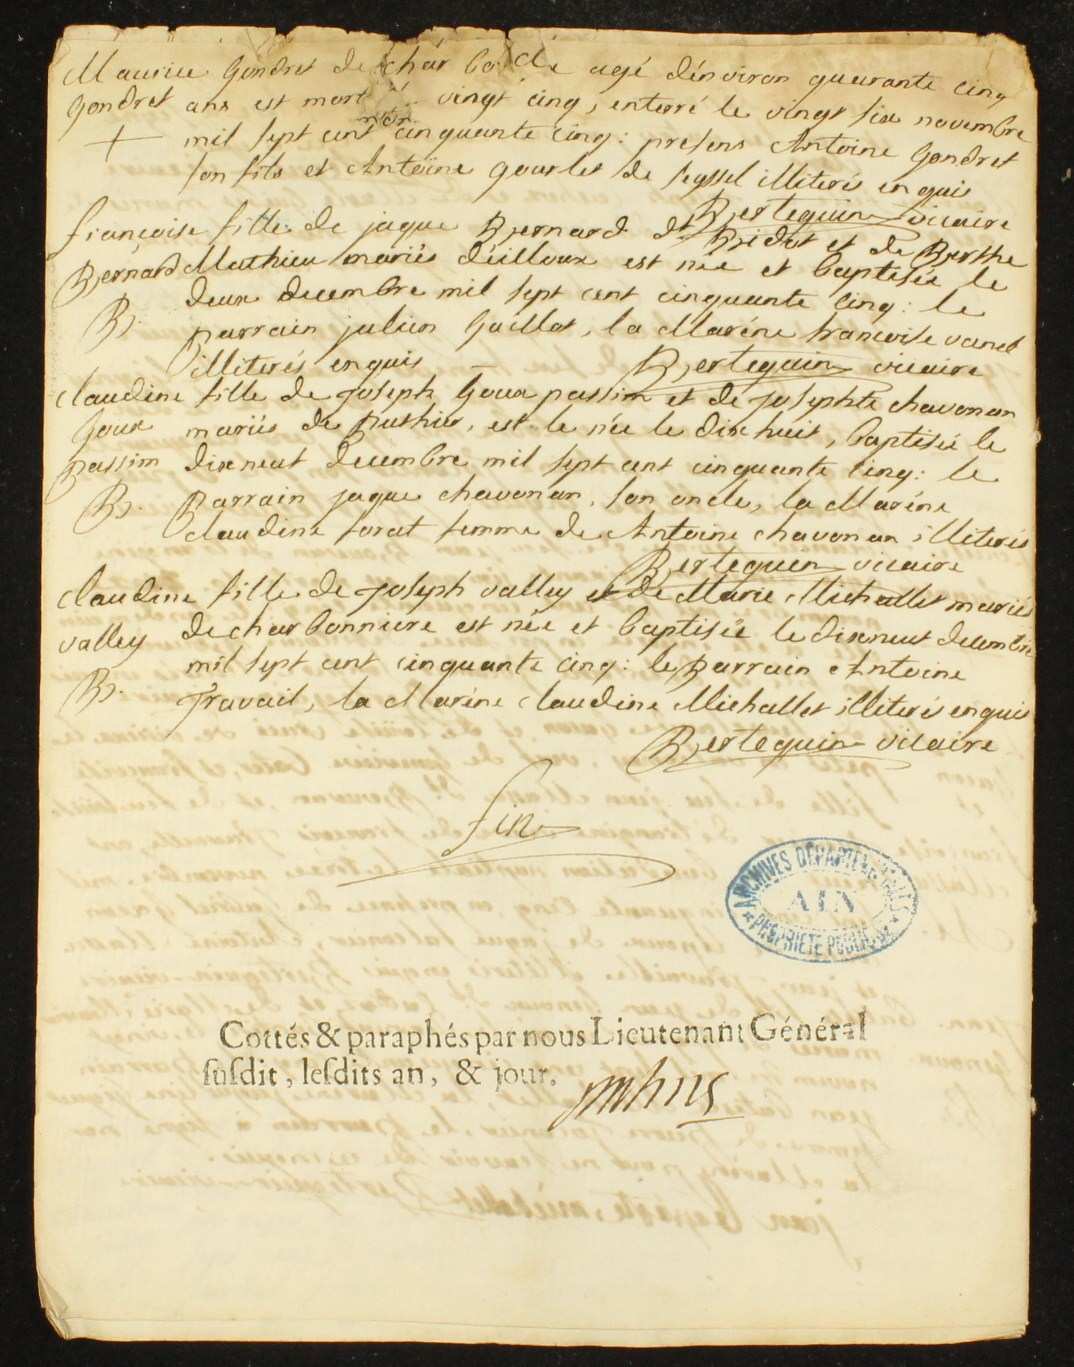 Maurice Gondret de agé d'environ quarante cinq
Gondret ans est mort vingt cinq, enterré le vingt six novembre
+ mil sept cent cinquante cinq: presens Antoine Gondret
son fils et Antoine gourlet de seyssel illiterés enquis
Bertequin vicaire
françoise fille de jaque Bernard de et de Berthe
Bernard Mathieu mariés d'illoux est née et baptisée le
B. deux decembre mil sept cent cinquante cinq: le
parrain julien Gaillot, la Maréne francoise
illiterés enquis Bertequin vicaire
claudine fille de Joseph Goux passim et de Josephte chavonan
Goux mariés de est le née le dixhuit, baptisée le
passim dixneuf decembre mil sept cent cinquante cinq: le
B. Parrain jaque chavonan, son oncle, la Maréne
claudine forat femme de Antoine chavonan illiterés
Bertequin vicaire
claudine fille de Joseph valley et de Marie Michallet mariés
valley de charbonniere est née et baptisée le dixneuf decembre
mil sept cent cinquante cinq: le Parrain Antoine
B. Travail, la Maréne claudine Michallet illiterés enquis
Bertequin vicaire
fin
ARCHIVES DÉPARTEMENTALES
AIN
PROPRIÉTÉ PUBLIQUE
Cottés & paraphés par nous Lieutenant Général
ſuſdit, leſdits an, & jour.